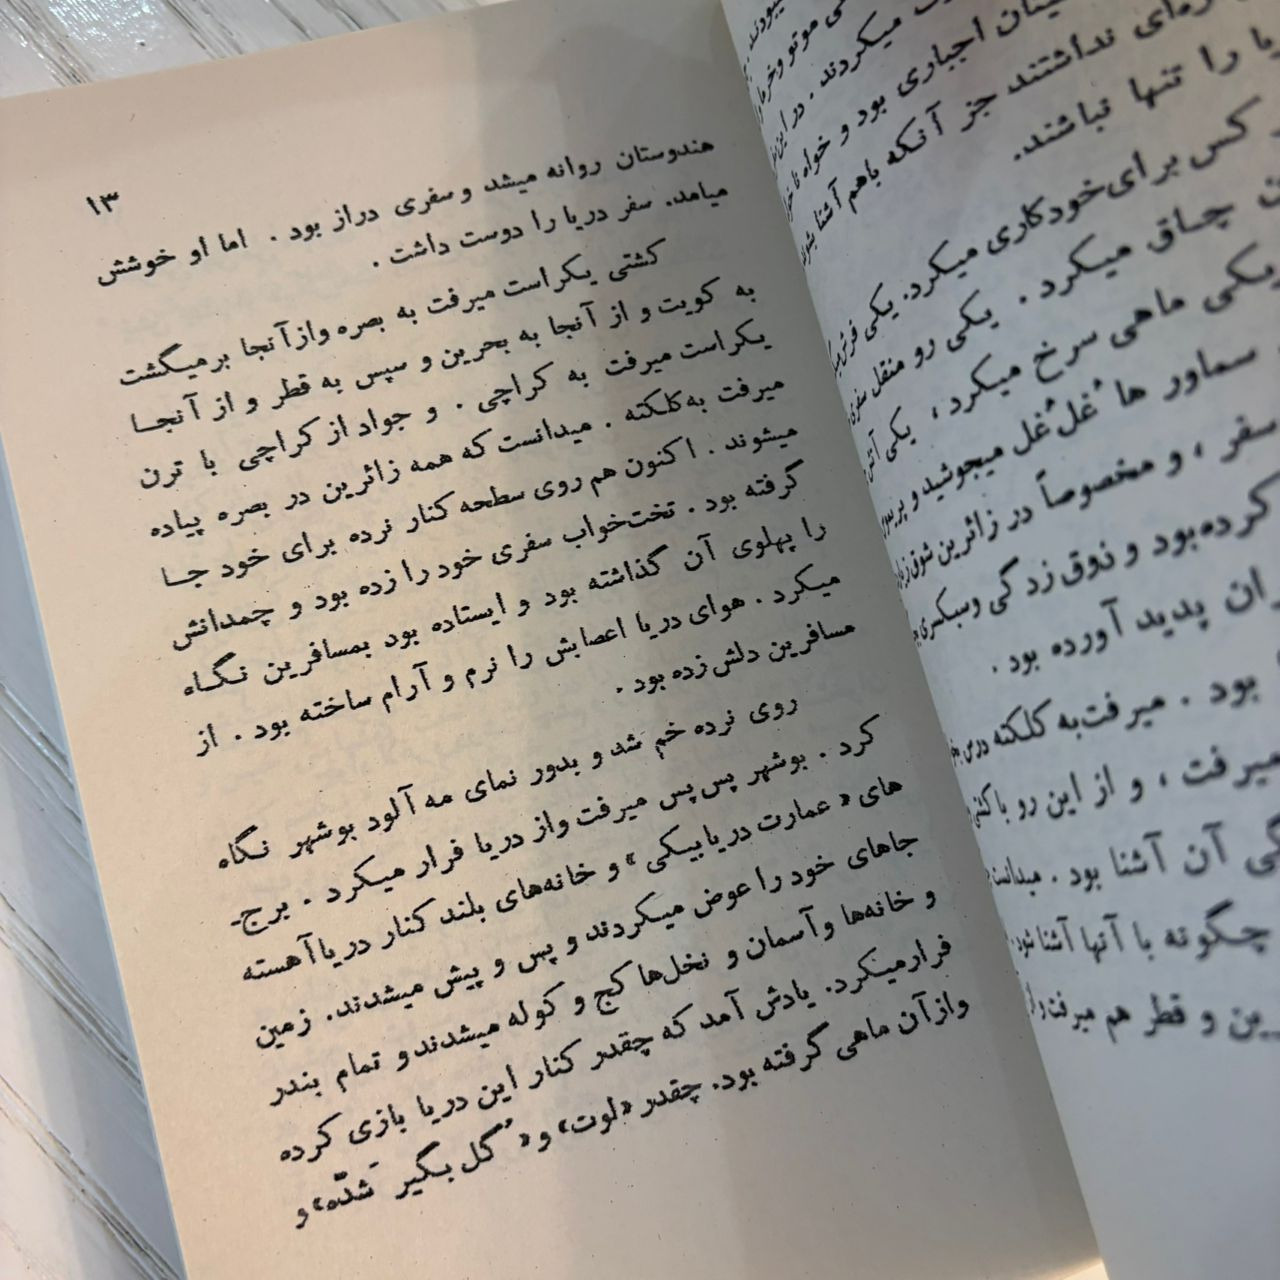 ۱۳
هندوستان روانه میشد و سفری دراز بود . اما او خوشش
میامد. سفر دریا را دوست داشت .
کشتی یکراست میرفت به بصره وازآنجا برمیگشت
به کویت و از آنجا به بحرین و سپس به قطر و از آنجا
یکراست میرفت به کراچی . و جواد از کراچی با ترن
میرفت به کلکته . میدانست که همه زائرین در بصره پیاده
میشوند . اکنون هم روی سطحه کنار نرده برای خود جا
گرفته بود . تخت‌خواب سفری خود را زده بود و چمدانش
را پهلوی آن گذاشته بود و ایستاده بود بمسافرین نگاه
میکرد . هوای دریا اعصابش را نرم و آرام ساخته بود . از
مسافرین دلش زده بود .
روی نرده خم شد و بدور نمای مه آلود بوشهر نگاه
کرد . بوشهر پس‌پس میرفت واز دریا فرار میکرد . برج‌
های « عمارت دریابیکی » و خانه‌های بلند کنار دریاآهسته
جاهای خود را عوض میکردند و پس و پیش میشدند. زمین
و خانه‌ها وآسمان و نخل‌ها کج و کوله میشدندو تمام بندر
فرارمیکرد. یادش آمد که چقدر کنار این دریا بازی کرده
وازآن ماهی گرفته بود. چقدر «لوت» و «گُل بگیر شَدّه» و
میکردند . در این
اجباری بود و خواه
ای نداشتند جز آنکه باهم آشنا
را تنها نباشند.
کس برای خودکاری میکرد. یکی
چاق میکرد . یکی رو منقل سفری
یکی ماهی سرخ میکرد ، یکی
سماور ها غُل‌غُل میجوشید و
سفر ، و مخصوصاً در زائرین شوق
کرده‌بود و ذوق زدگی وسبکسری
پدید آورده بود .
بود . میرفت‌به کلکته درس
میرفت ، و از این رو با کشتی
آن آشنا بود . میدانست
چگونه با آنها آشنا شود .
و قطر هم میرفت و